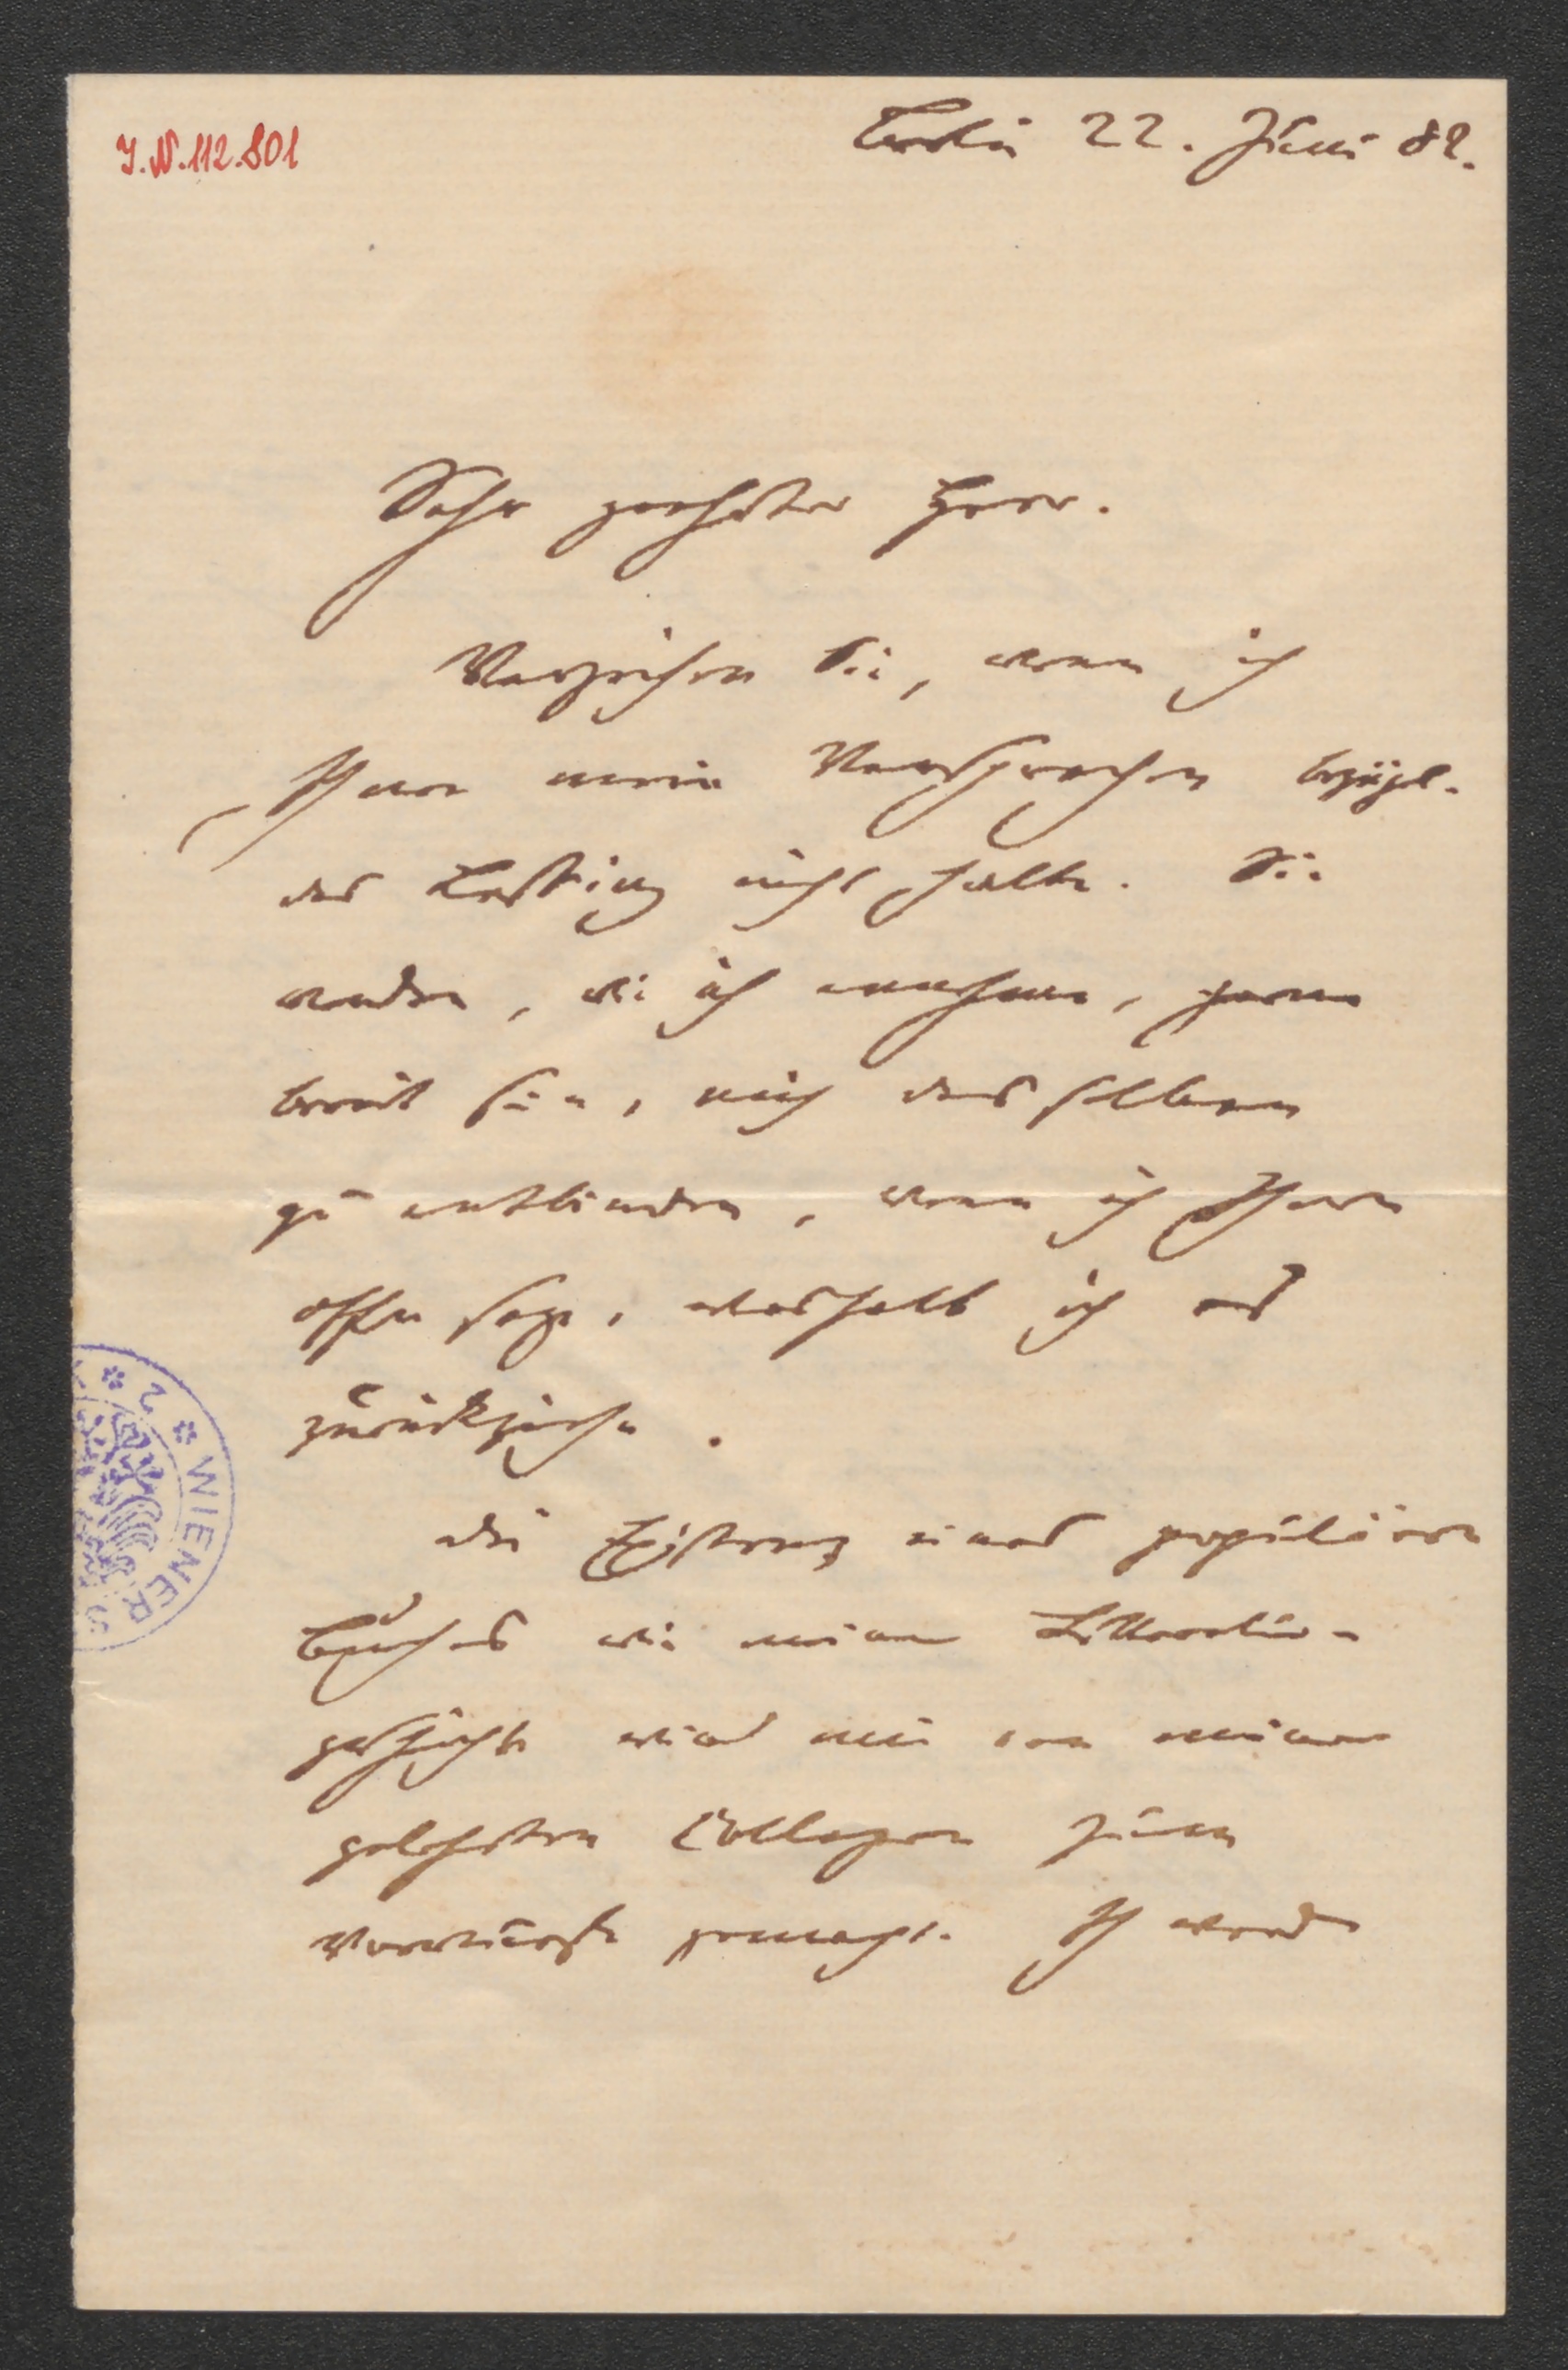 J.N. 112.801
Berlin 22. Juni 82.
Sehr geehrter Herr.
Verzeihen Sie, wenn ich
Ihnen mein Versprechen bezügl.
des Lessing nicht halte. Sie
werden, wie ich annehme, gerne
bereit sein, mich desselben
zu entbinden, wenn ich Ihnen
offen sage, weshalb ich es
zurückziehe.
Die Existenz eines populären
Buches wie meiner Litteratur-
geschichte wird mir von meinen
gelehrten Collegen zum
Vorwurfe gemacht. Ich werde
WIENER S